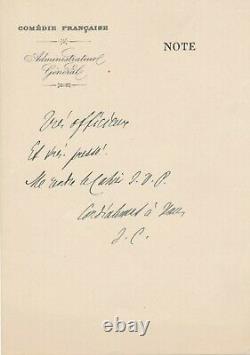 COMÉDIE FRANÇAISE
Administrateur
Général
NOTE
Très officieux
Et très pressé.
Me rendre le Cahier S.V.P.
Cordialement à Vous
J. C.